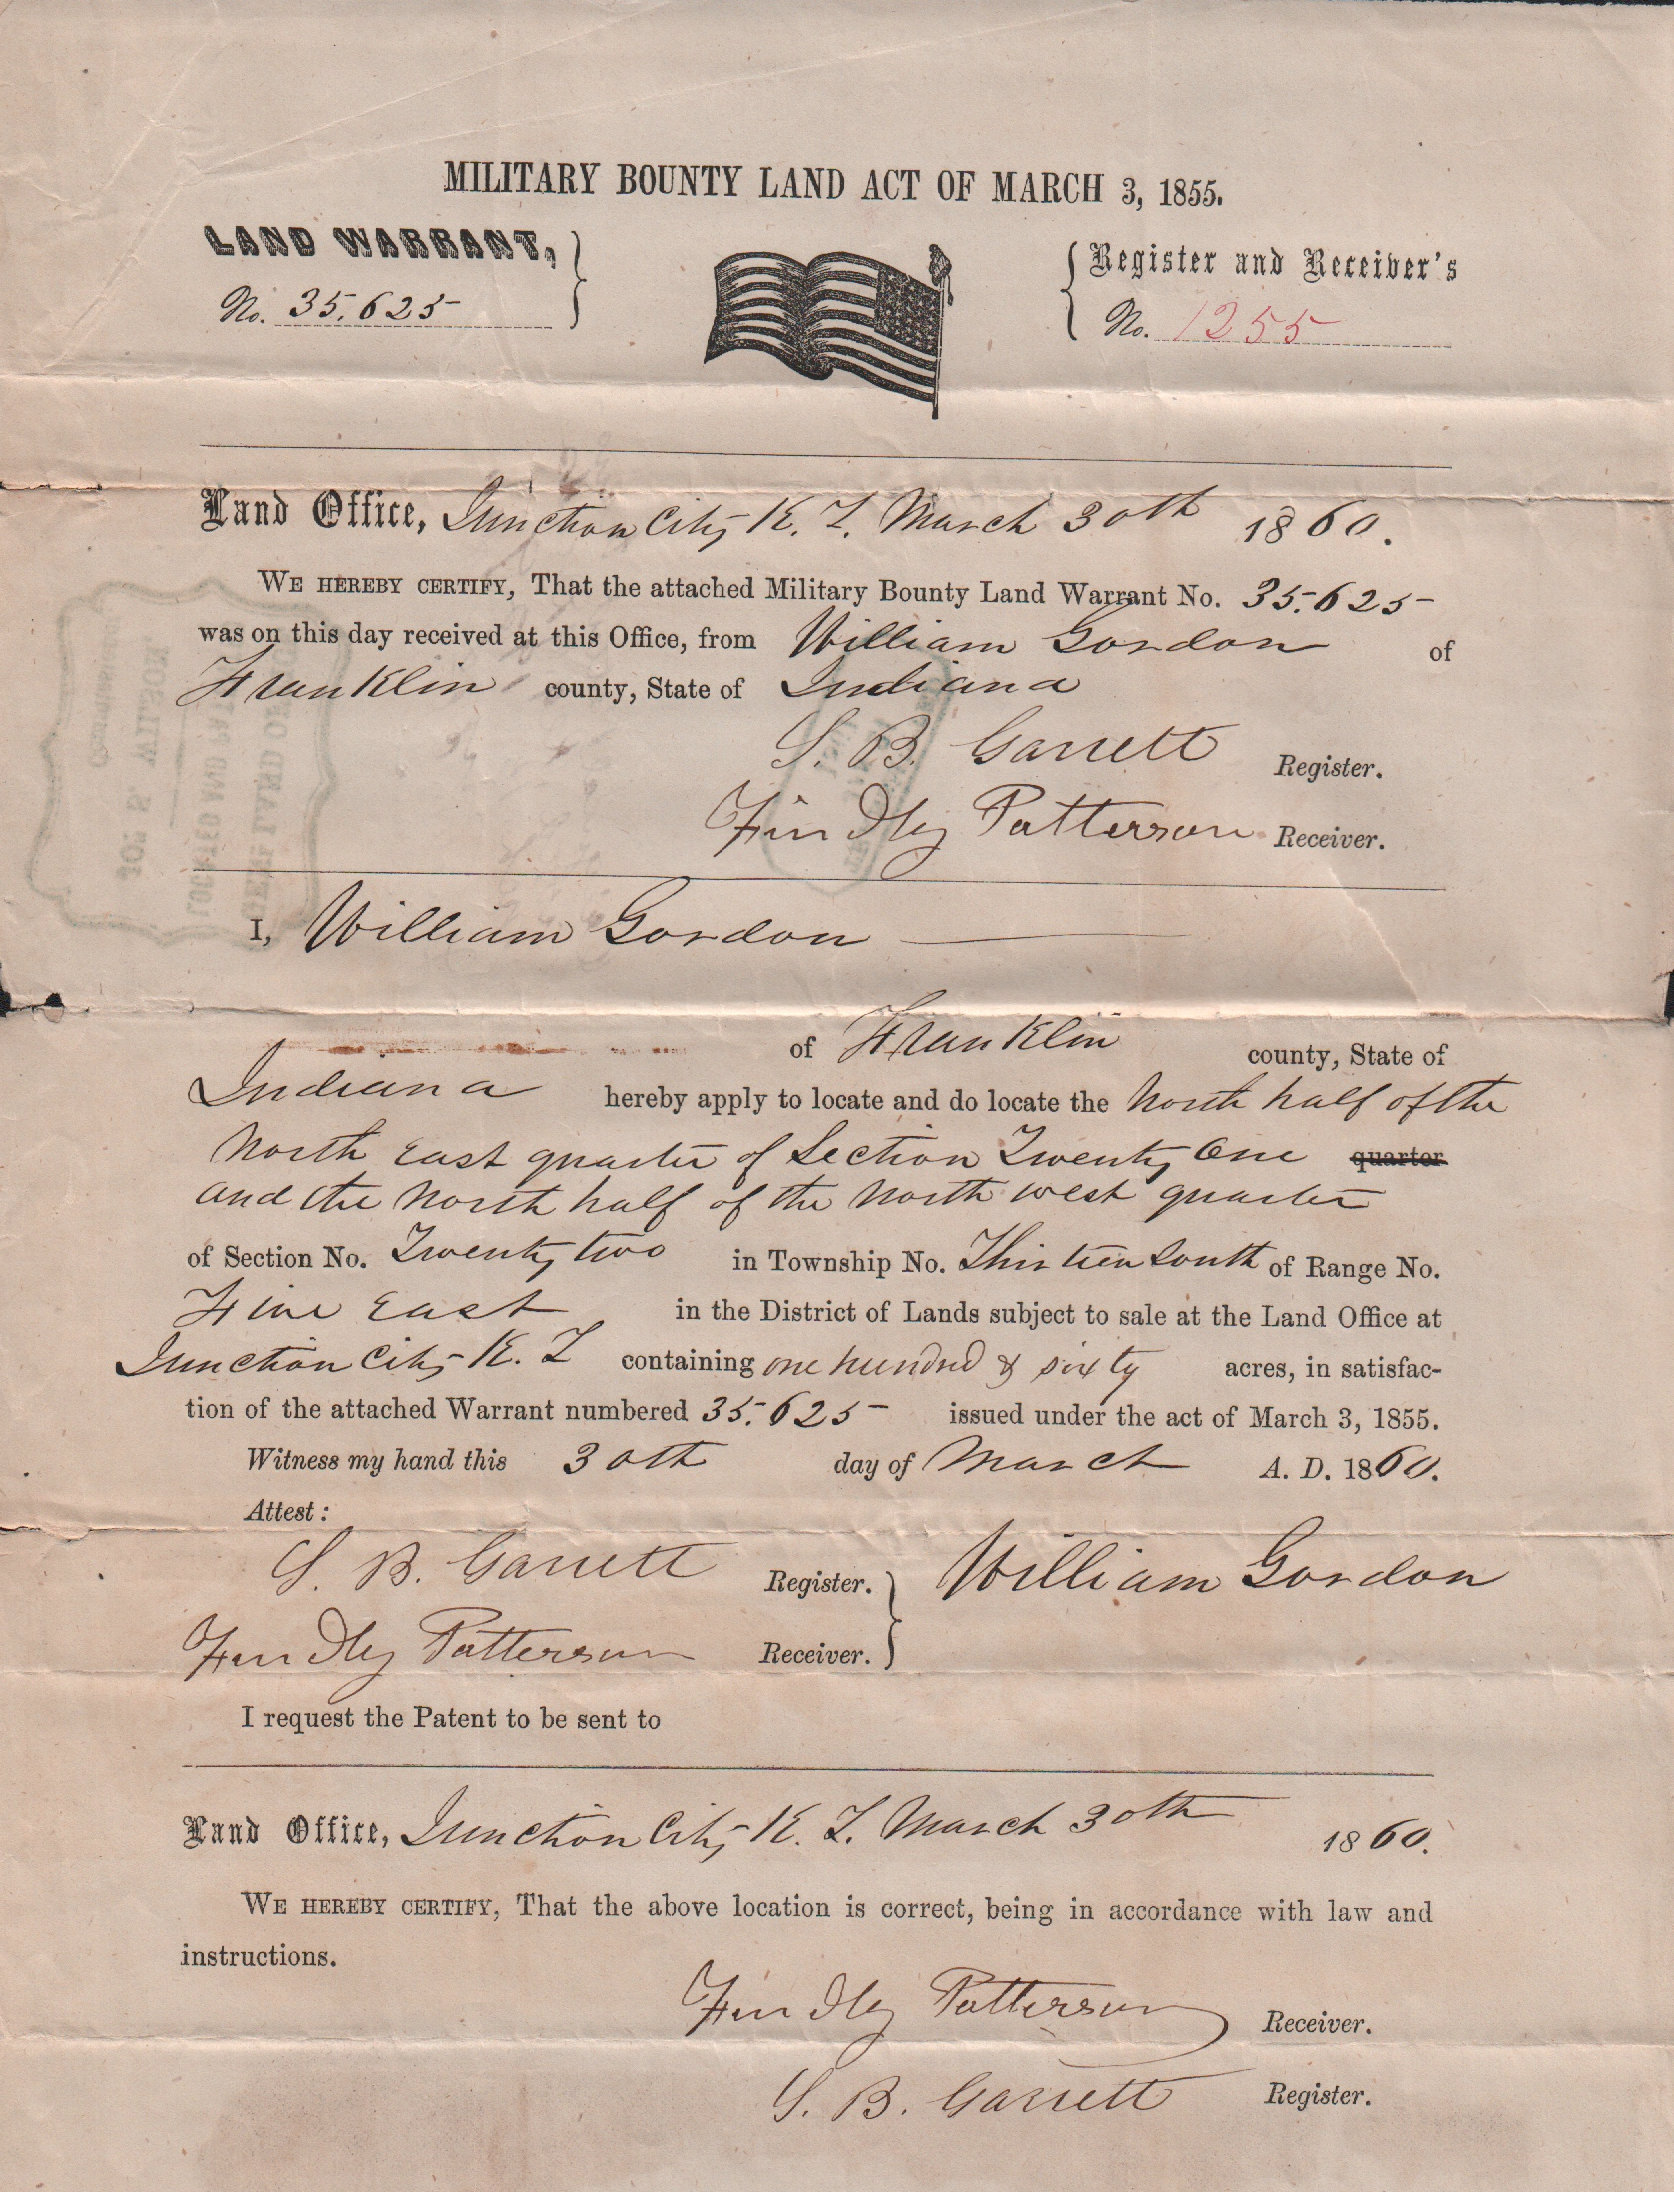 MILITARY BOUNTY LAND ACT OF MARCH 3, 1855.
LAND WARRANT,
No. 35.625
Register and Receiver's
No. 1255
Land Office, Junction City K. T. March 30th 1860.
WE HEREBY CERTIFY, That the attached Military Bounty Land Warrant No. 35.625
was on this day received at this Office, from William Gordon of
Franklin county, State of Indiana
S. B. Garrett Register.
Findley Patterson Receiver.
I, William Gordon
of Franklin county, State of
Indiana hereby apply to locate and do locate the North half of the
North East quarter of Section Twenty One quarter
and the North half of the North west quarter
of Section No. Twenty two in Township No. Thirteen South of Range No.
Five East in the District of Lands subject to sale at the Land Office at
Junction City K. T containing one hundred & sixty acres, in satisfac-
tion of the attached Warrant numbered 35.625 issued under the act of March 3, 1855.
Witness my hand this 30th day of March A. D. 1860.
Attest:
S. B. Garrett Register. William Gordon
Findley Patterson Receiver.
I request the Patent to be sent to
Land Office, Junction City K. T. March 30th 1860.
WE HEREBY CERTIFY, That the above location is correct, being in accordance with law and
instructions.
Findley Patterson Receiver.
S. B. Garrett Register.